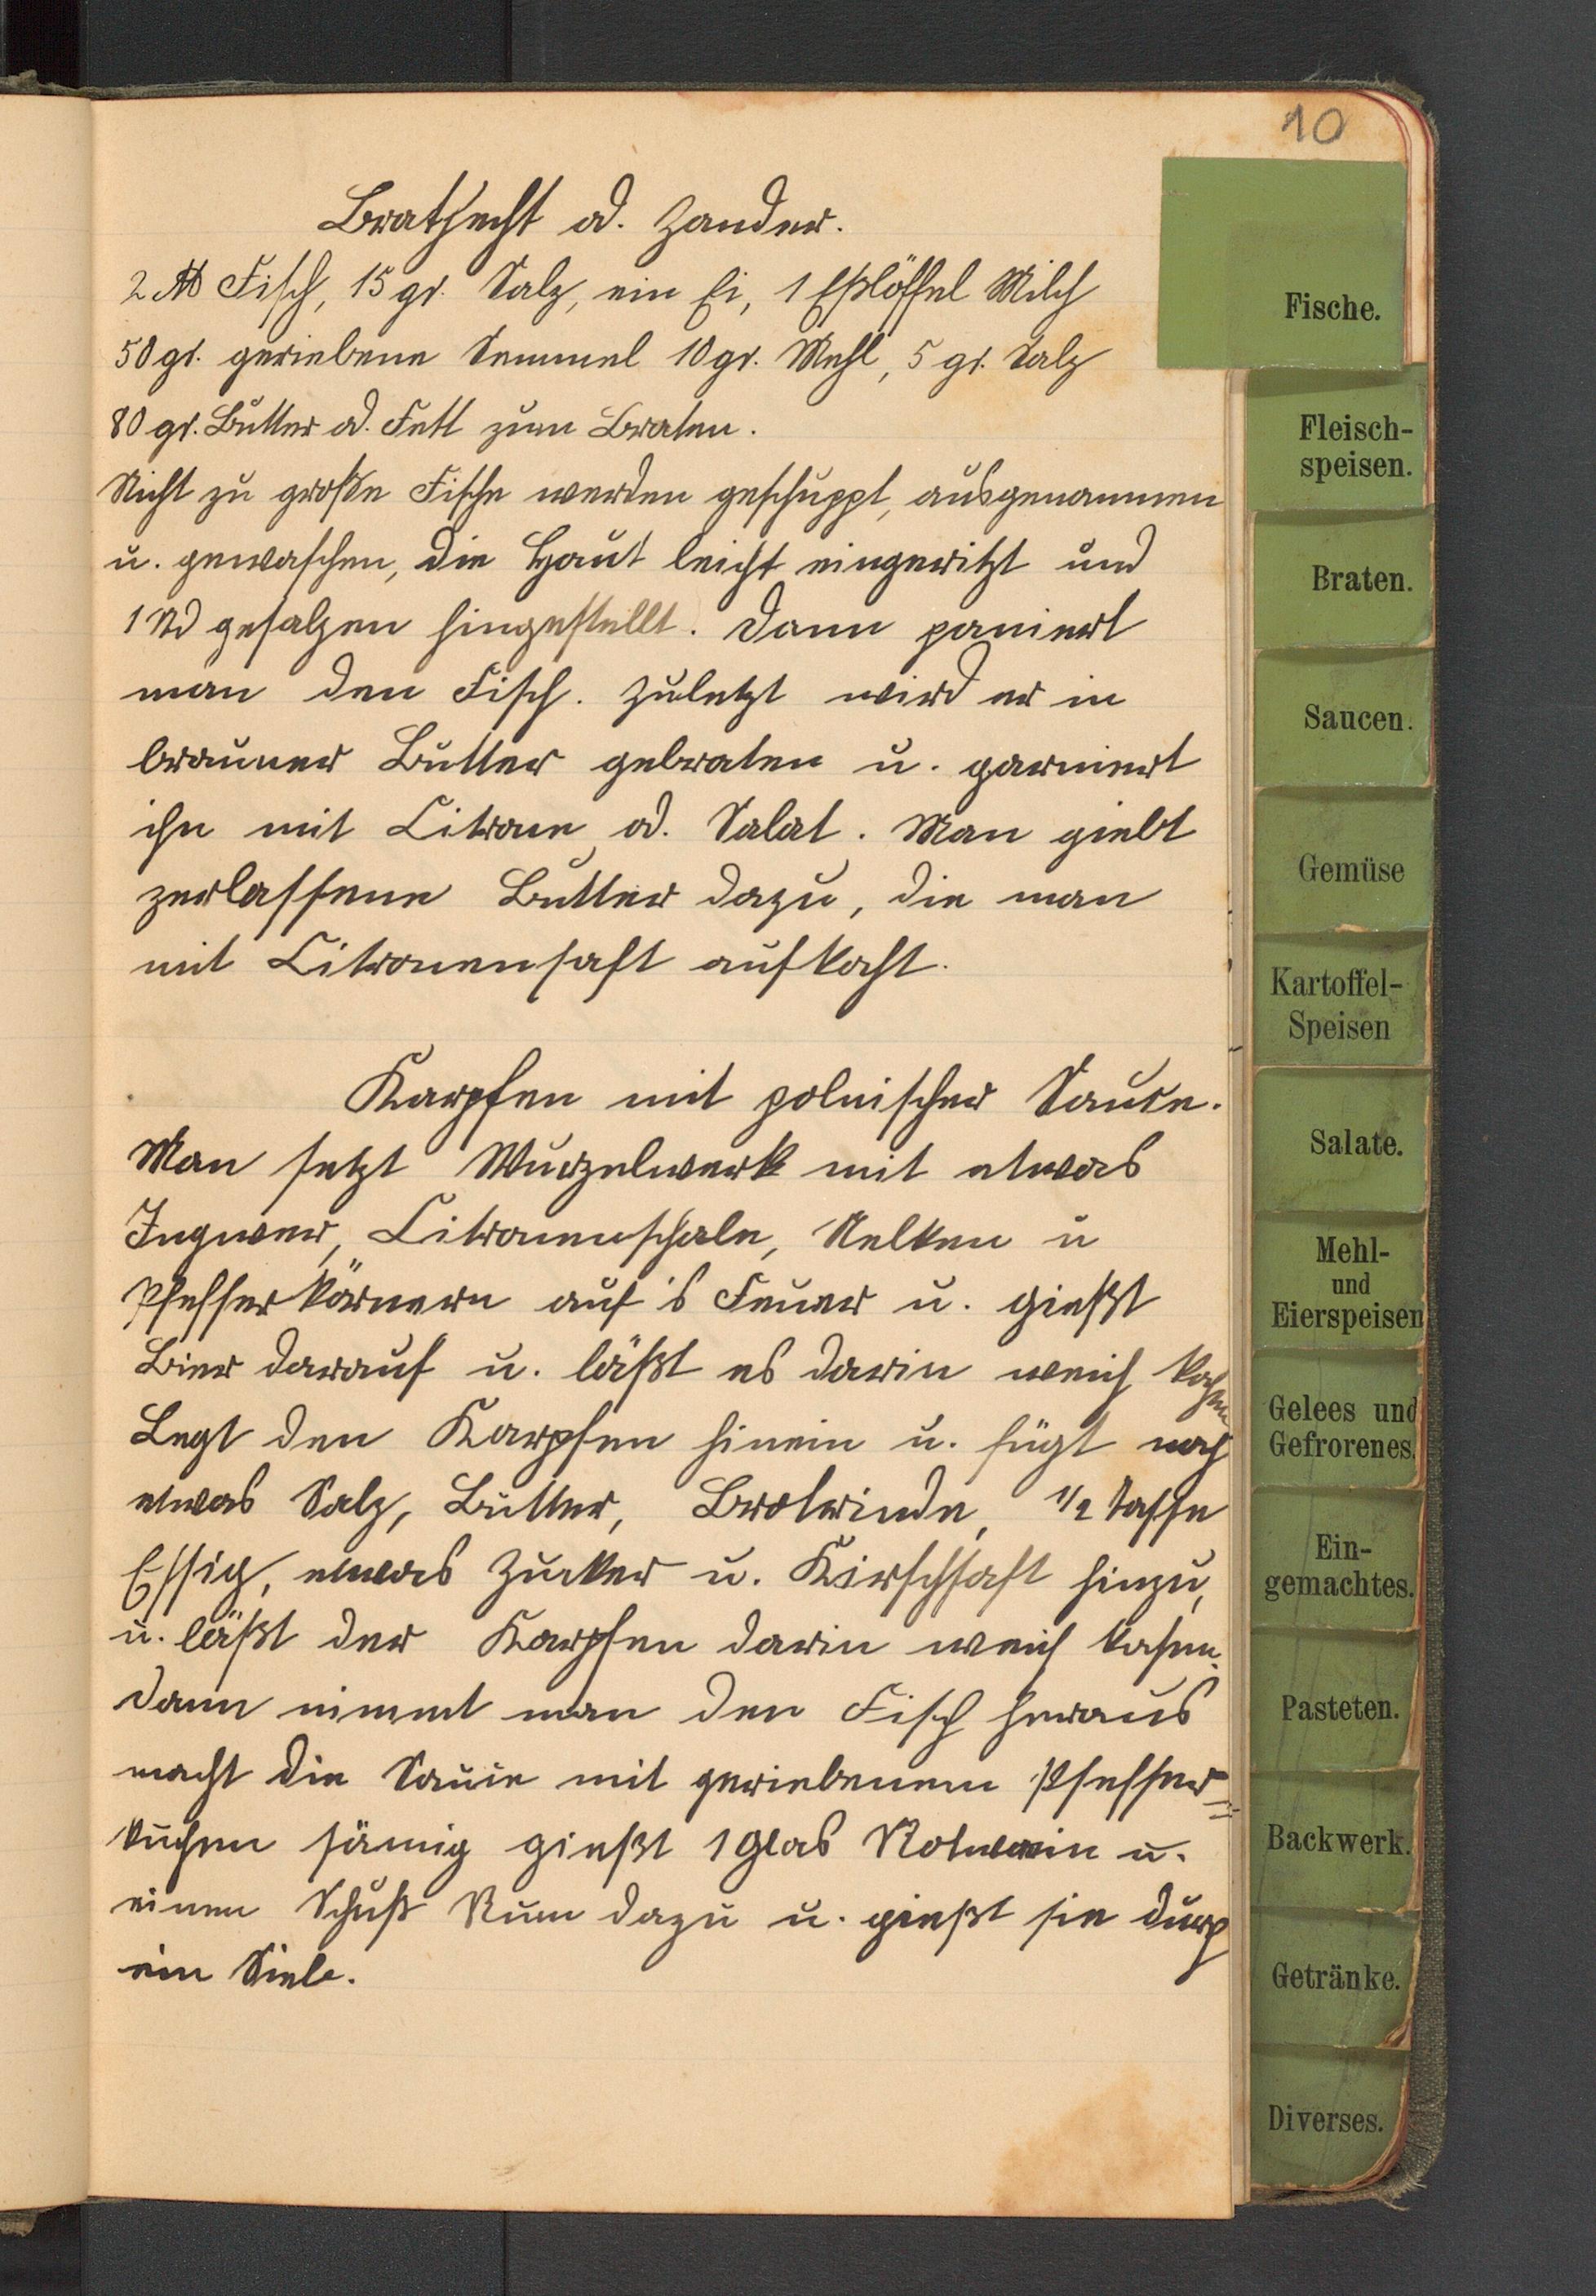 10
Brathecht od. Zander.
2 ℔ Fisch, 15 gr. Salz, ein Ei, 1 Eßlöffel Milch
50 gr. geriebene Semmel 10 gr. Mehl, 5 gr. Salz
80 gr. Butter od. Fett zum Braten.
Nicht zu große Fische werden geschuppt, ausgenommen
u. gewaschen, die Haut leicht eingeritzt und
1 Std gesalzen hingestellt. Dann paniert
man den Fisch. Zuletzt wird er in
brauner Butter gebraten u. garniert
ihn mit Citrone od. Salat. Man giebt
zerlassene Butter dazu, die man
mit Citronensaft aufkocht.
Karpfen mit polnischer Sauce.
Man setzt Wurzelwerk mit etwas
Ingwer, Citronenschale, Nelken u
Pfefferkörnern auf's Feuer u. gießt
Bier darauf u. läßt es darin weich kochen
Legt den Karpfen hinein u. fügt noch
etwas Salz, Butter, Brotrinde, 1/2 Tasse
Essig, etwas Zucker u. Kirschsaft hinzu,
u. läßt der Karpfen darin weich kochen.
Dann nimmt man den Fisch heraus
macht die Sauce mit geriebenem Pfeffer=
kuchen sämig gießt 1 Glas Rotwein u.
einen Schuß Rum dazu u. gießt sie durch
ein Sieb.
Fische.
Fleisch-
speisen.
Braten.
Saucen.
Gemüse
Kartoffel-
Speisen
Salate.
Mehl-
und
Eierspeisen
Gelees und
Gefrorenes.
Ein-
gemachtes.
Pasteten.
Backwerk.
Getränke.
Diverses.